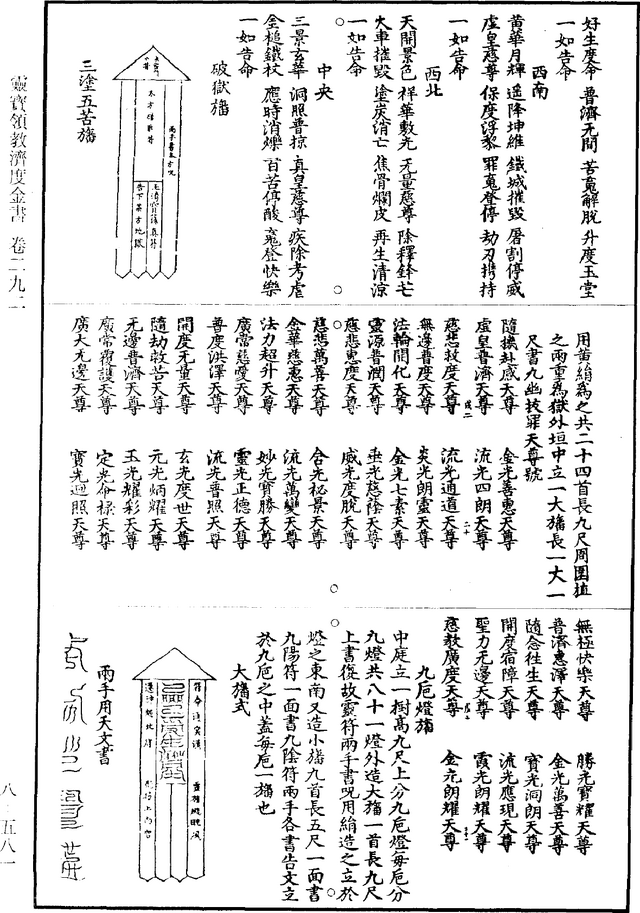 靈寶領教濟度金書 卷二九二
好生度命 普濟无間 苦䰟解脫 升度玉堂
一如告命
西南
黃華月輝 遥降坤維 鐵城摧毀 屠割停威
虛皇慈尊 保度浮黎 罪䰟登停 劫刃擕持
一如告命
西北
天開景色 祥華敷光 无量慈尊 除釋鋒芒
火車摧毀 塗炭消亡 焦骨爛皮 再生清涼
一如告命
中央
三景玄華 洞照普掠 真皇慈尊 疾除考虐
金槌鐵杖 應時消爍 百苦停酸 䰟登快樂
一如告命
破獄旛
三塗五苦旛
用黃絹爲之共二十四首長九尺周圍植
之兩重爲獄外垣中立一大旛長一大一
尺書九幽拔罪天尊號
隨機赴感天尊 金光善惠天尊
虛皇普濟天尊 流光四朗天尊
慈悲救度天尊 流光通道天尊
無邊普度天尊 炎光朗靈天尊
法輪開化天尊 金光七素天尊
靈源普潤天尊 垂光慈蔭天尊
慈悲惠度天尊 威光度脫天尊
慈悲萬善天尊 含光祕景天尊
金華慈惠天尊 流光萬變天尊
法力超升天尊 妙光寶勝天尊
廣當慈愛天尊 靈光正德天尊
普度洪澤天尊 流光普照天尊
開度无量天尊 玄光度世天尊
隨劫救苦天尊 元光炳耀天尊
无邊普濟天尊 玉光耀彩天尊
廣常覆護天尊 定光侖祿天尊
廣大无邊天尊 寶光迴照天尊
無極快樂天尊 勝光寶耀天尊
普濟惠澤天尊 金光萬善天尊
隨念徃生天尊 寶光洞朗天尊
開度宿障天尊 流光應現天尊
聖力无邊天尊 霞光朗耀天尊
慈教廣度天尊 金光朗耀天尊
九戹燈旛
中庭立一樹高九尺上分九戹燈每戹分
九燈共八十一燈外造大旛一首長九尺
上書復故靈符兩手書呪用絹造之立於
燈之東南又造小旛九首長五尺一面書
九陽符一面書九陰符兩手各書告文立
於九戹之中蓋每戹一旛也
大旛式
兩手用天文書
八—五八一